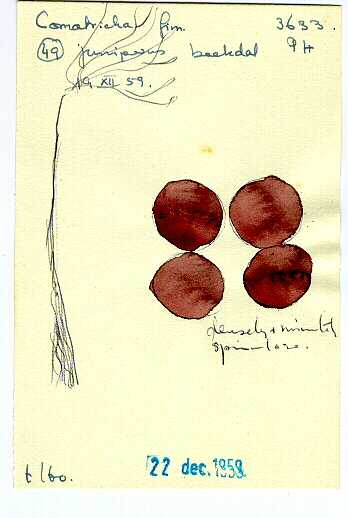 Comatricha fim. 3633.
49 juniperus beekdal 9H
19 XII 59.
densely + minutely
spinulose.
t/60.
22 dec. 1959